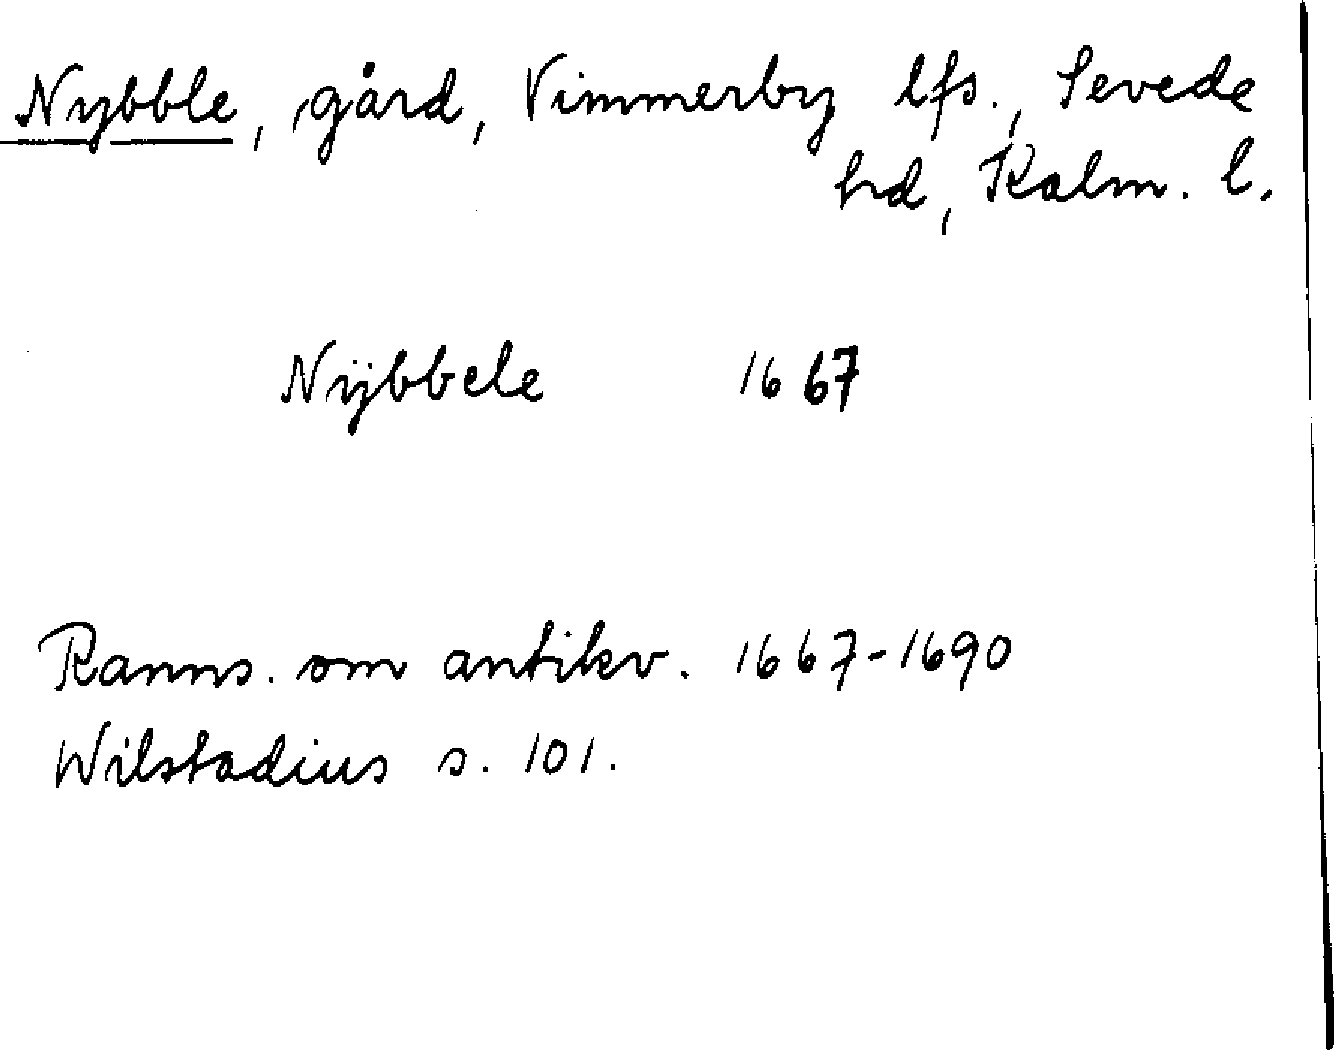 Nybble, gård, Vimmerby lfs., Sevede
hd, Kalm. l.
Nÿbbele 1667
Ranns. om antikv. 1667-1690
Wilstadius s. 101.